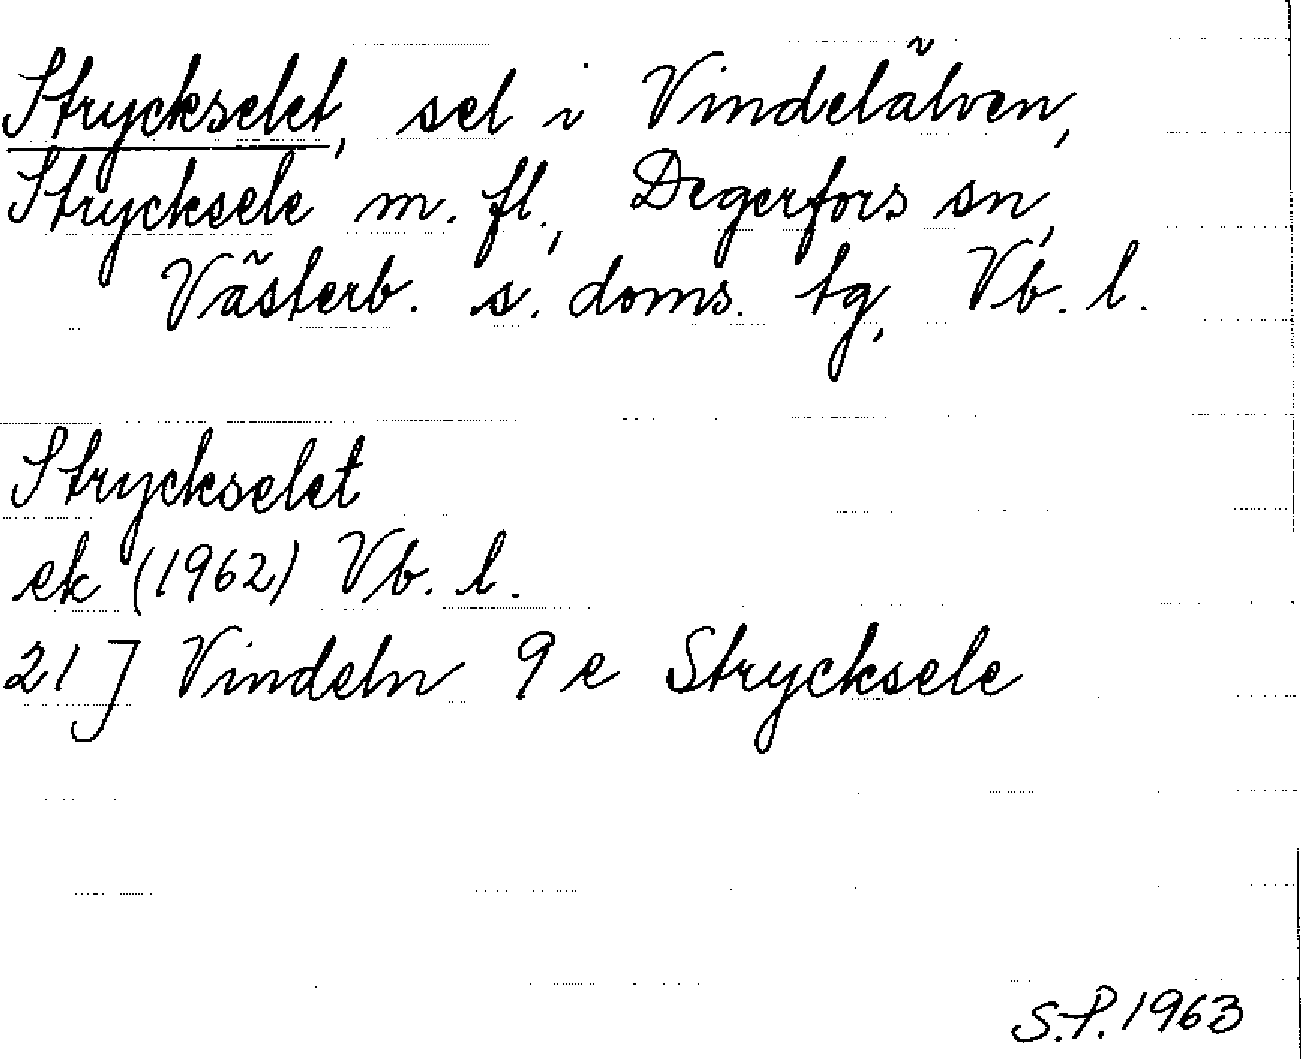 Stryckselet, sel i Vindelälven,
Strycksele m. fl., Degerfors sn,
Västerb. s. doms. tg, Vb. l.
Stryckselet
ek (1962) Vb. l.
21 J Vindeln 9 e Strycksele
S.P. 1963